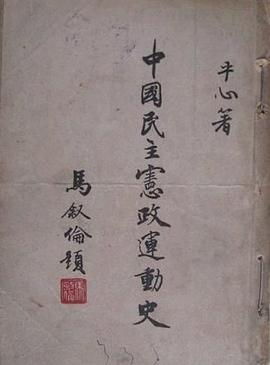 平心著
中國民主憲政運動史
馬叙倫題